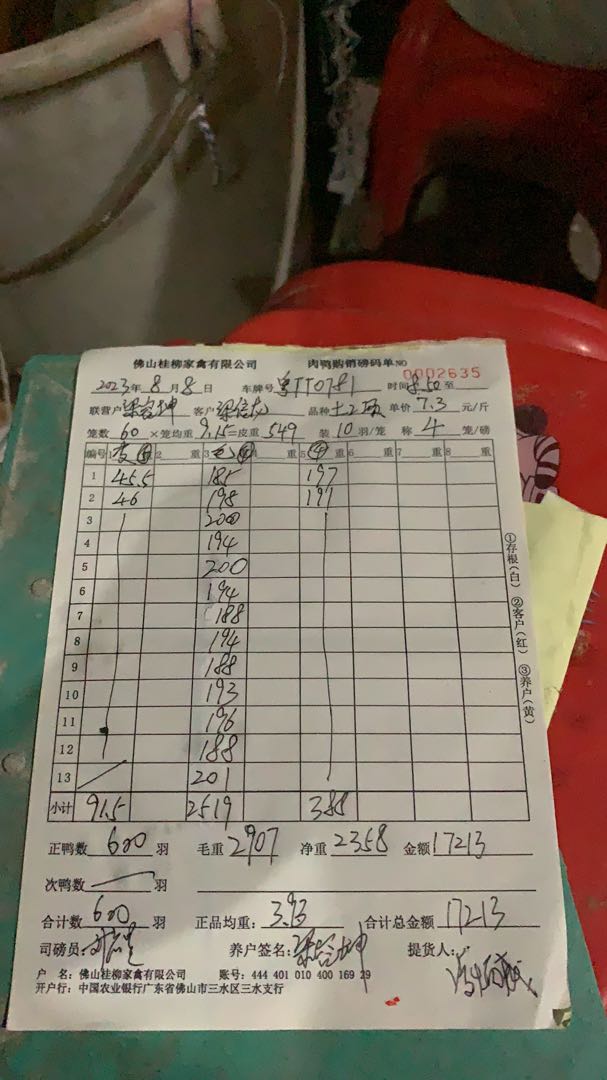 佛山桂柳家禽有限公司 肉鸭购销磅码单 NO 0002635
2023年 8月 8日 车牌号 粤TT0781 时间 8.50 至
联营户 梁容坤 客户 品种 土2项 单价 7.3 元/斤
笼数 60 ×笼均重 9.15 =皮重 549 装 10 羽/笼 称 4 笼/磅
编号 1 皮 重 2 重 3 毛 重 4 重 5 重 6 重 7 重 8 重
1 45.5 185 197
2 46 198 191
3 200
4 194
5 200
6 194
7 188
8 194
9 188
10 193
11 196
12 188
13 201
小计 91.5 2519 388
正鸭数 600 羽 毛重 2907 净重 2358 金额 17213
次鸭数 羽
合计数 600 羽 正品均重: 3.93 合计总金额 17213
司磅员: 养户签名: 梁容坤 提货人:
户 名: 佛山桂柳家禽有限公司 账号: 444 401 010 400 169 29
开户行: 中国农业银行广东省佛山市三水区三水支行
①存根(白) ②客户(红) ③养户(黄)